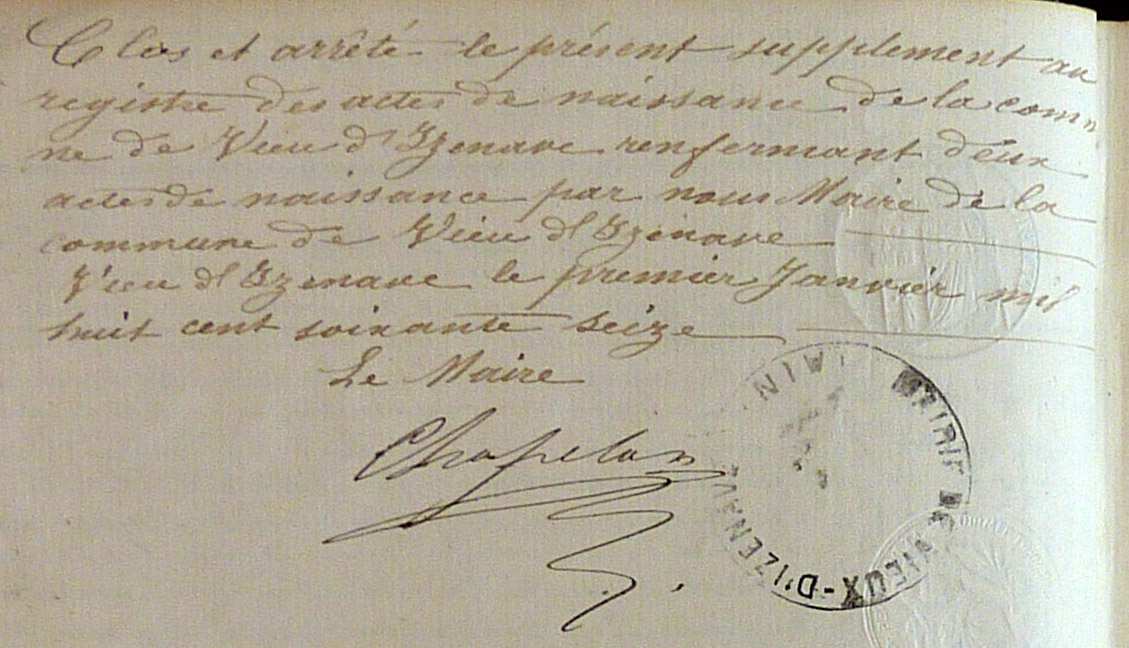 Clos et arrêté le présent supplement au
registre des actes de naissance de la comm
ne de Vieu d'Izenave renfermant deux
actes de naissance par nous Maire de la
commune de Vieu d'Izenave
Vieu d'Izenave le premier Janvier mil
huit cent soixante seize
Le Maire
Chapelan
MAIRIE DE VIEUX-D'IZENAVE